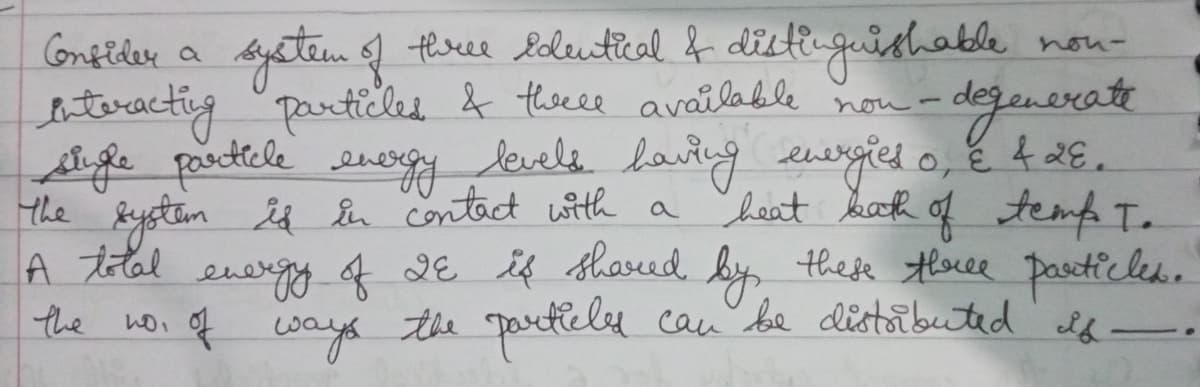 Consider a system of three identical & distinguishable non-
interacting particles & three available non-degenerate
single particle energy levels having energies 0, ε & 2ε.
the system is in contact with a heat bath of temp T.
A total energy of 2ε is shared by these three particles.
the no. of ways the particles can be distributed is —.